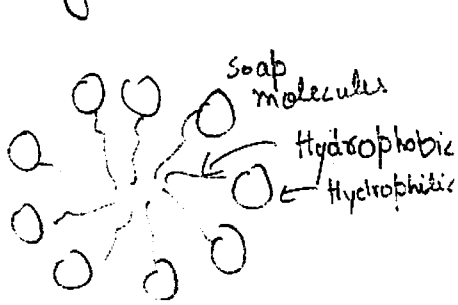 soap
molecules
Hydrophobic
Hydrophitic